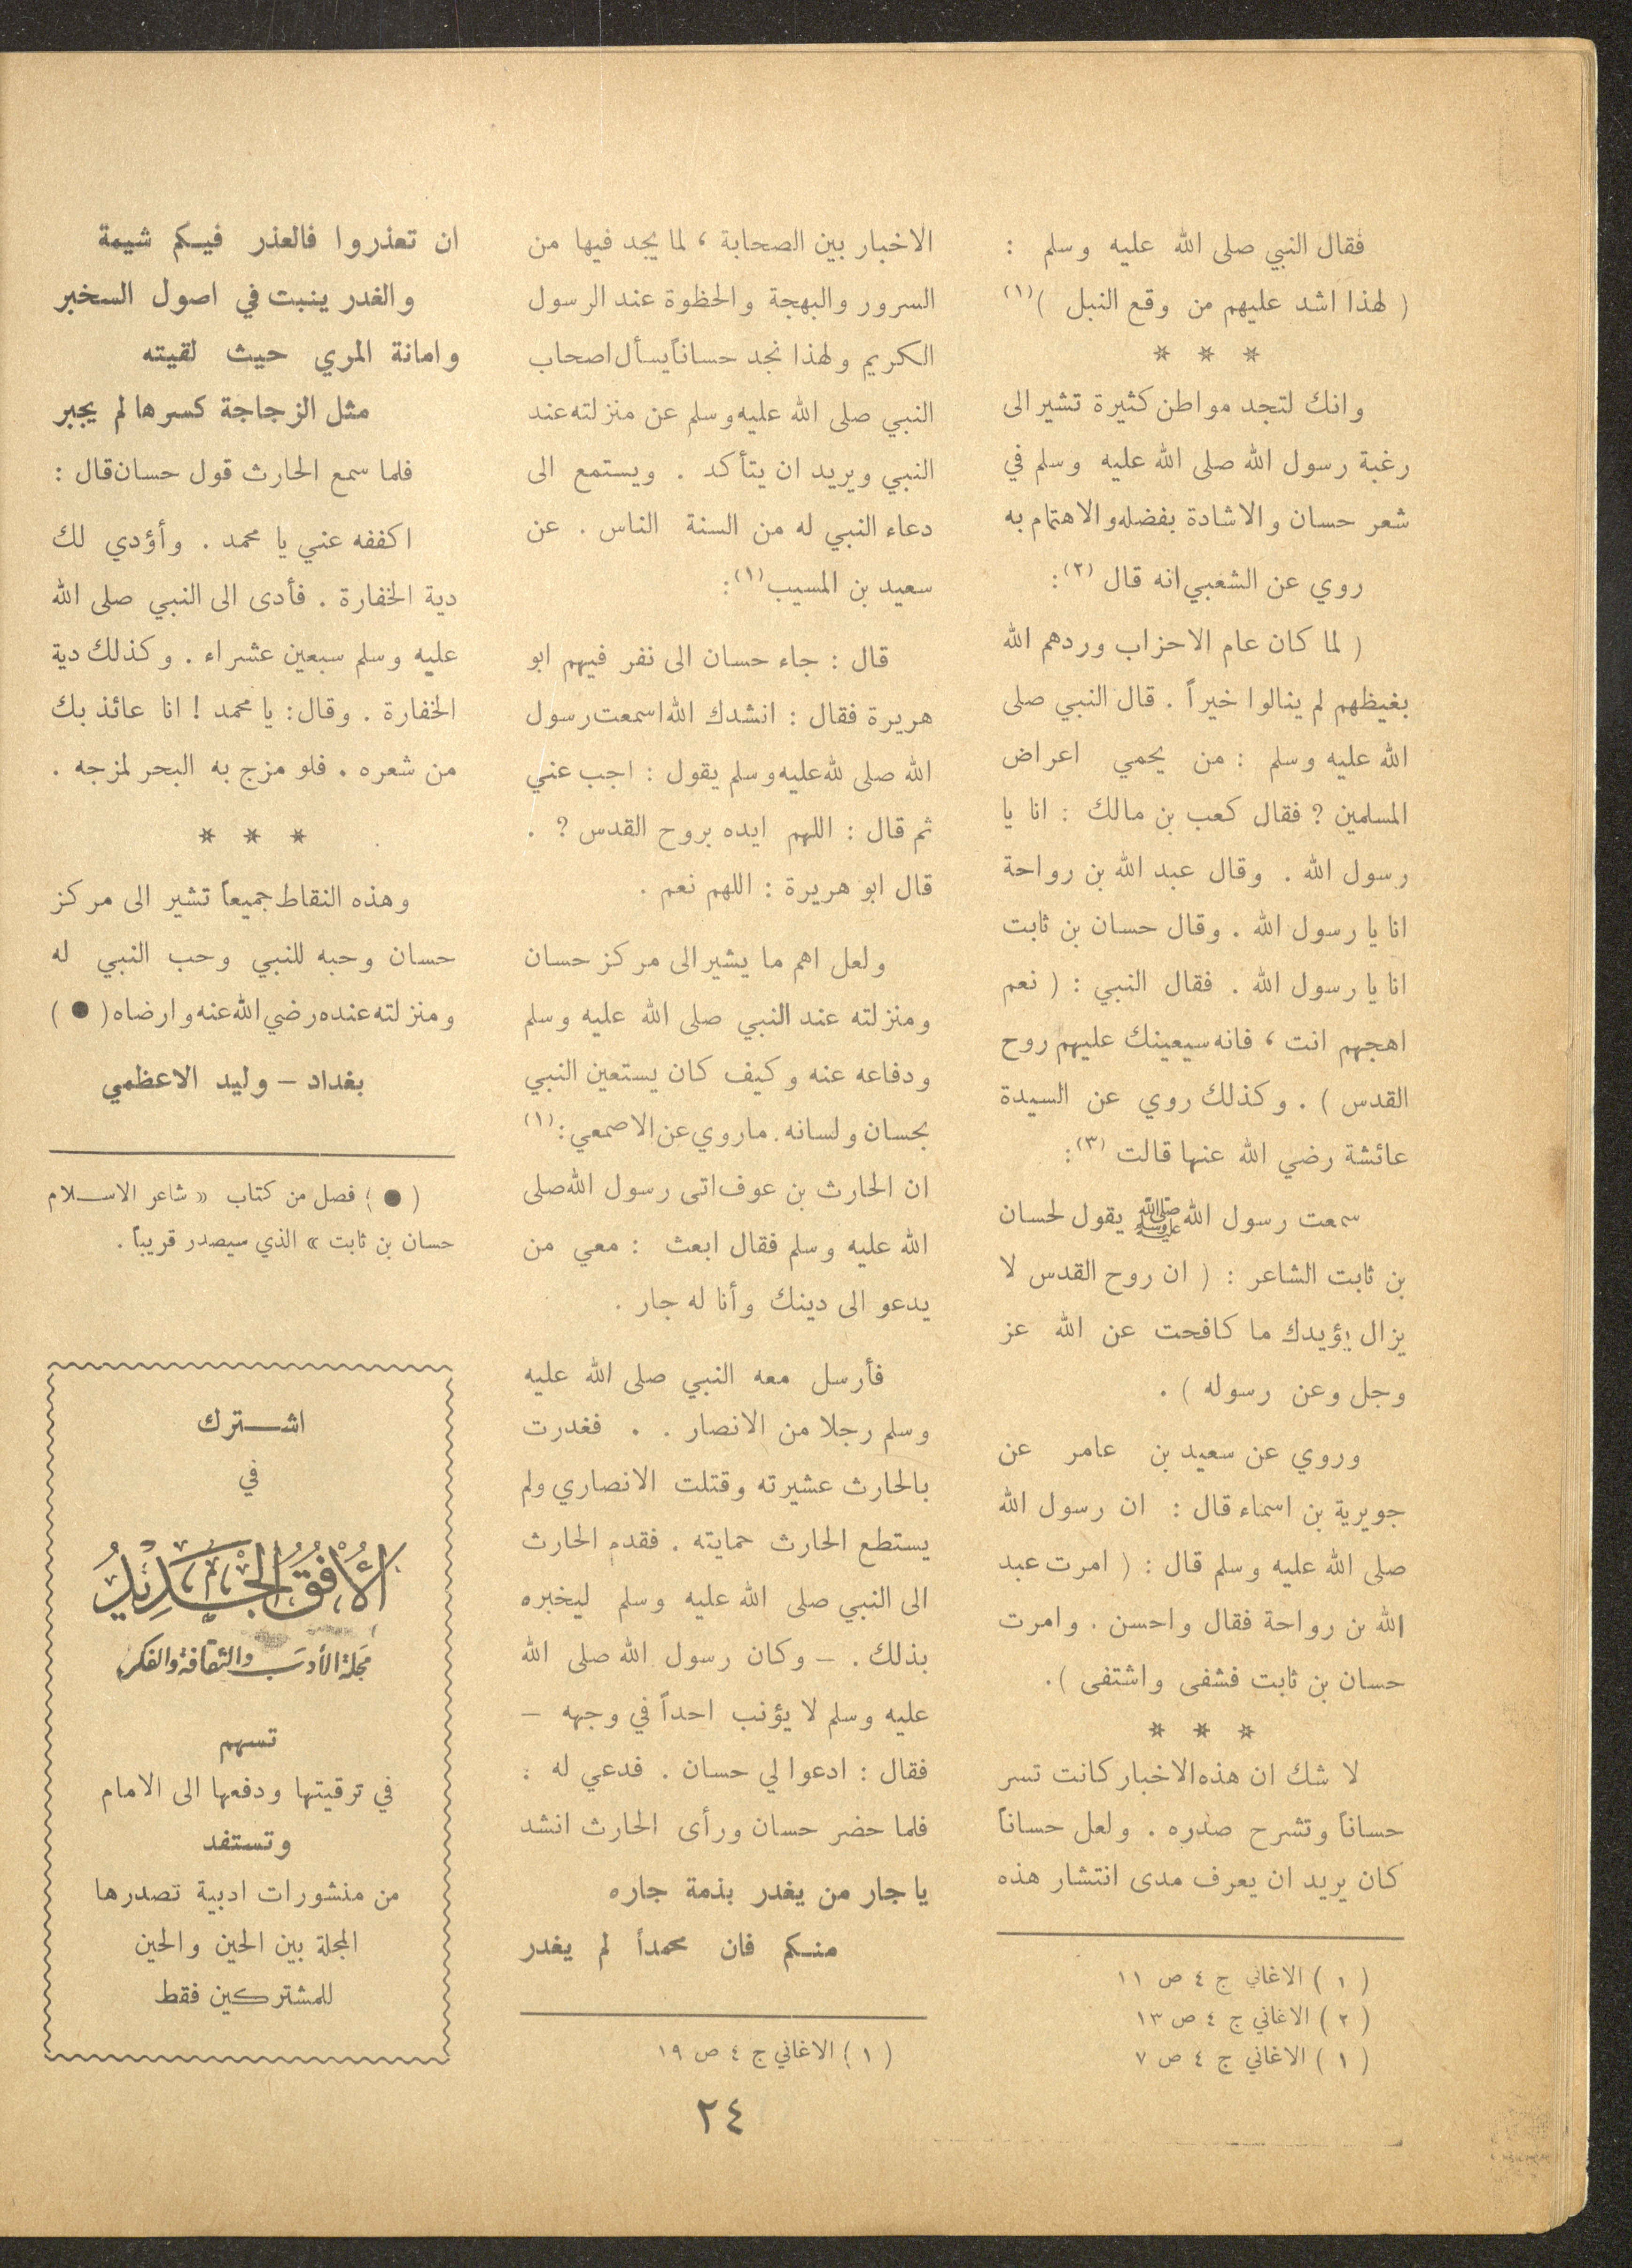 فقال النبي صلى الله عليه وسلم :
( لهذا اشد عليهم من وقع النبل )(١)
* * *
وانك لتجد مواطن كثيرة تشير الى
رغبة رسول الله صلى الله عليه وسلم في
شعر حسان والاشادة بفضله والاهتمام به
روي عن الشعبي انه قال (٢):
( لما كان عام الاحزاب وردهم الله
بغيظهم لم ينالوا خيراً . قال النبي صلى
الله عليه وسلم : من يحمي اعراض
المسلمين ؟ فقال كعب بن مالك : انا يا
رسول الله . وقال عبد الله بن رواحة
انا يا رسول الله . وقال حسان بن ثابت
انا يا رسول الله . فقال النبي : ( نعم
اهجهم انت ، فانه سيعينك عليهم روح
القدس ) . وكذلك روي عن السيدة
عائشة رضي الله عنها قالت (٣):
سمعت رسول الله ﷺ يقول لحسان
بن ثابت الشاعر : ( ان روح القدس لا
يزال يؤيدك ما كافحت عن الله عز
وجل وعن رسوله ) .
وروي عن سعيد بن عامر عن
جويرية بن اسماء قال : ان رسول الله
صلى الله عليه وسلم قال : ( امرت عبد
الله بن رواحة فقال واحسن . وامرت
حسان بن ثابت فشفى واشتفى ) .
* * *
لا شك ان هذه الاخبار كانت تسر
حساناً وتشرح صدره . ولعل حساناً
كان يريد ان يعرف مدى انتشار هذه
( ١ ) الاغاني ج ٤ ص ١١
( ٢ ) الاغاني ج ٤ ص ١٣
( ١ ) الاغاني ج ٤ ص ٧
الاخبار بين الصحابة ، لما يجد فيها من
السرور والبهجة والحظوة عند الرسول
الكريم ولهذا نجد حساناً يسأل اصحاب
النبي صلى الله عليه وسلم عن منزلته عند
النبي ويريد ان يتأكد . ويستمع الى
دعاء النبي له من السنة الناس . عن
سعيد بن المسيب (١):
قال : جاء حسان الى نفر فيهم ابو
هريرة فقال : انشدك الله اسمعت رسول
الله صلى لله عليه وسلم يقول : اجب عني
ثم قال : اللهم ايده بروح القدس ؟ .
قال ابو هريرة : اللهم نعم .
ولعل اهم ما يشير الى مركز حسان
ومنزلته عند النبي صلى الله عليه وسلم
ودفاعه عنه وكيف كان يستعين النبي
بحسان ولسانه . ماروي عن الاصمعي : (١)
ان الحارث بن عوف اتى رسول الله صلى
الله عليه وسلم فقال ابعث : معي من
يدعو الى دينك وأنا له جار .
فأرسل معه النبي صلى الله عليه
وسلم رجلا من الانصار . . فغدرت
بالحارث عشيرته وقتلت الانصاري ولم
يستطع الحارث حمايته . فقدم الحارث
الى النبي صلى الله عليه وسلم ليخبره
بذلك . – وكان رسول الله صلى الله
عليه وسلم لا يؤنب احداً في وجهه –
فقال : ادعوا لي حسان . فدعي له :
فلما حضر حسان ورأى الحارث انشد
يا جار من يغدر بذمة جاره
منكم فان محمداً لم يغدر
( ١ ) الاغاني ج ٤ ص ١٩
ان تعذروا فالعذر فيكم شيمة
والغدر ينبت في اصول السخبر
وامانة المري حيث لقيته
مثل الزجاجة كسرها لم يجبر
فلما سمع الحارث قول حسان قال :
اكففه عني يا محمد . وأؤدي لك
دية الخفارة . فأدى الى النبي صلى الله
عليه وسلم سبعين عشراء . وكذلك دية
الخفارة . وقال : يا محمد ! انا عائذ بك
من شعره . فلو مزج به البحر لمزجه .
* * *
وهذه النقاط جميعاً تشير الى مركز
حسان وحبه للنبي وحب النبي له
ومنزلته عنده رضي الله عنه وارضاه ( ● )
بغداد – وليد الاعظمي
( ● ) فصل من كتاب « شاعر الاسلام
حسان بن ثابت » الذي سيصدر قريباً .
اشترك
في
الأُفق الجَديد
مجلة الأدب والثقافة والفكر
تسهم
في ترقيتها ودفعها الى الامام
وتستفد
من منشورات ادبية تصدرها
المجلة بين الحين والحين
للمشتركين فقط
٢٤